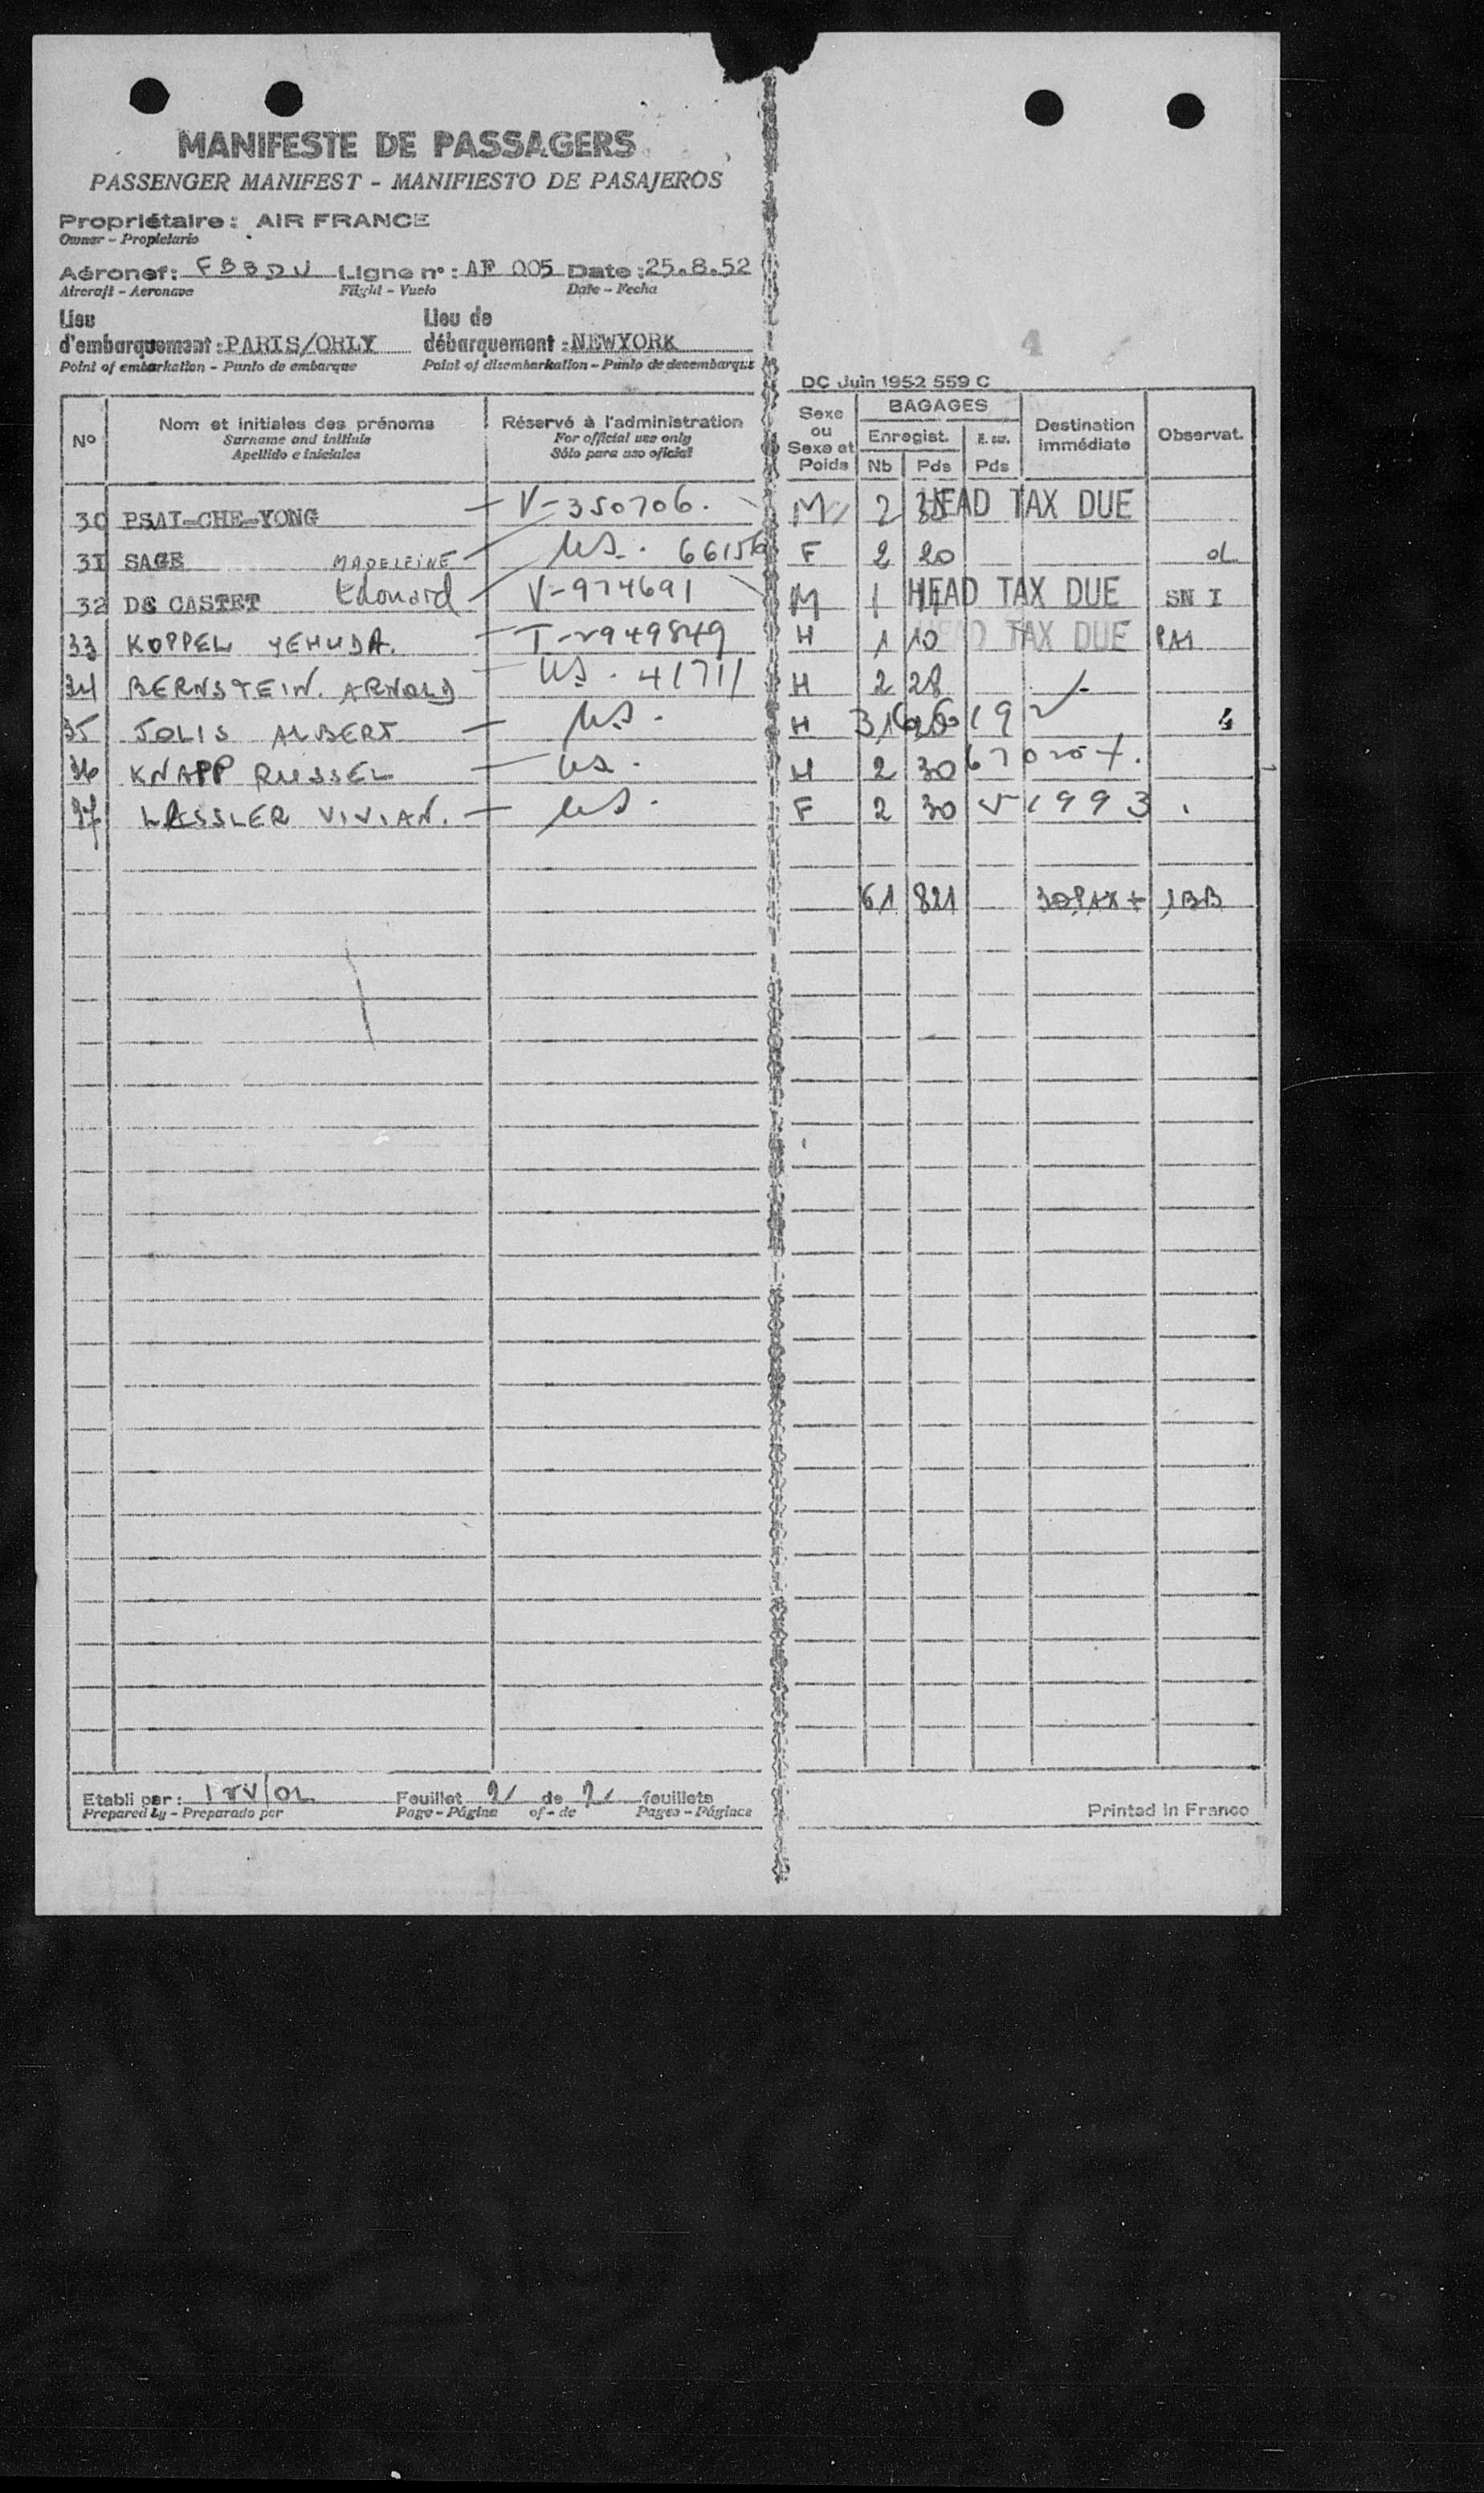 MANIFESTE DE PASSAGERS
PASSENGER MANIFEST - MANIFIESTO DE PASAJEROS
Propriétaire : AIR FRANCE
Owner - Propietario
Aéronef : FBBDU Ligne n° : AF 005 Date : 25.8.52
Aircraft - Aeronave Flight - Vuelo Date - Fecha
Lieu d'embarquement : PARIS/ORLY Lieu de débarquement : NEWYORK
Point of embarkation - Punto de embarque Point of disembarkation - Punto de desembarque
4
DC Juin 1952 559 C
N° Nom et initiales des prénoms Réservé à l'administration Sexe ou Sexe et Poids BAGAGES Destination immédiate Observat.
Surname and initials For official use only Enregist.
Apellido e iniciales Sólo para uso oficial Nb Pds Pds
30 PSAI-CHE-YONG V-350706. M 2 HEAD TAX DUE
31 SAGE MADELEINE US. 66156 F 2 20
32 DE CASTET Edouard V-974691 M 1 HEAD TAX DUE SN I
33 KOPPEL YEHUDA. H 1 10 HEAD TAX DUE PA1
34 BERNSTEIN. ARNOLD US. 41711 H 2 28
35 JOLIS ALBERT US. H
36 KNAPP RUSSEL US. H 2 30
37 LASSLER VIVIAN. US. F 2 30 1993
61 821 30PAX + 1BB
Etabli par : Feuillet 2 de 2 feuillets
Prepared by - Preparado por Page - Página of - de Pages - Páginas
Printed in France